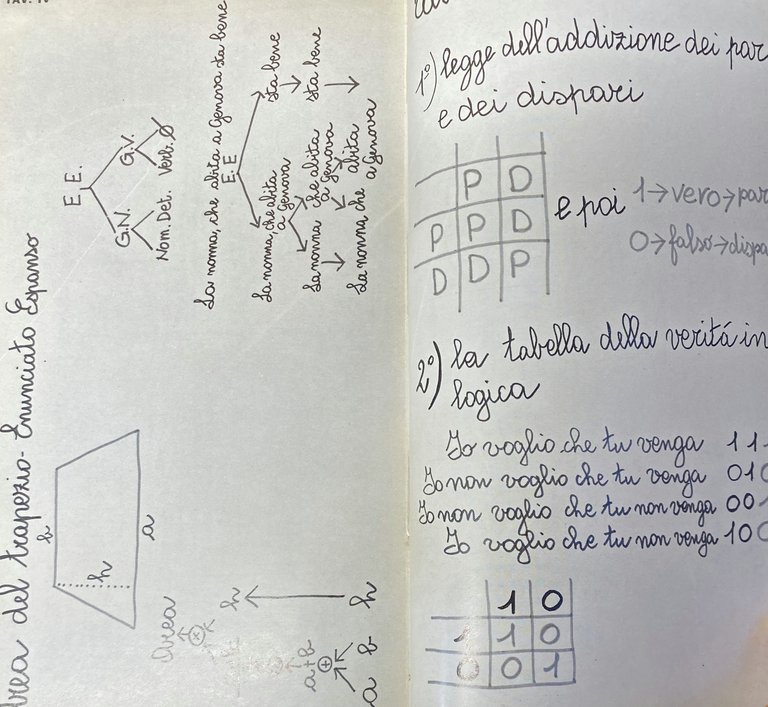 TAV. IV
Area del trapezio - Enunciato Espanso
b
h
a
Area
⊗
h
h
a+b
⊕
a b
E. E.
G.N. G.V.
Nom. Det. Verb. Ø
La nonna, che abita a Genova sta bene
E. E
La nonna, che abita a Genova
sta bene
La nonna che abita a Genova
sta bene
La nonna che abita a Genova
1º) legge dell'addizione dei par
e dei dispari
P D
P P D
D D P
e poi
1→vero→par
0→falso→dispa
2º) la tabella della veritá in
logica
Io voglio che tu venga 11
Io non voglio che tu venga 010
Io non voglio che tu non venga 001
Io voglio che tu non venga 100
1 0
1 1 0
0 0 1